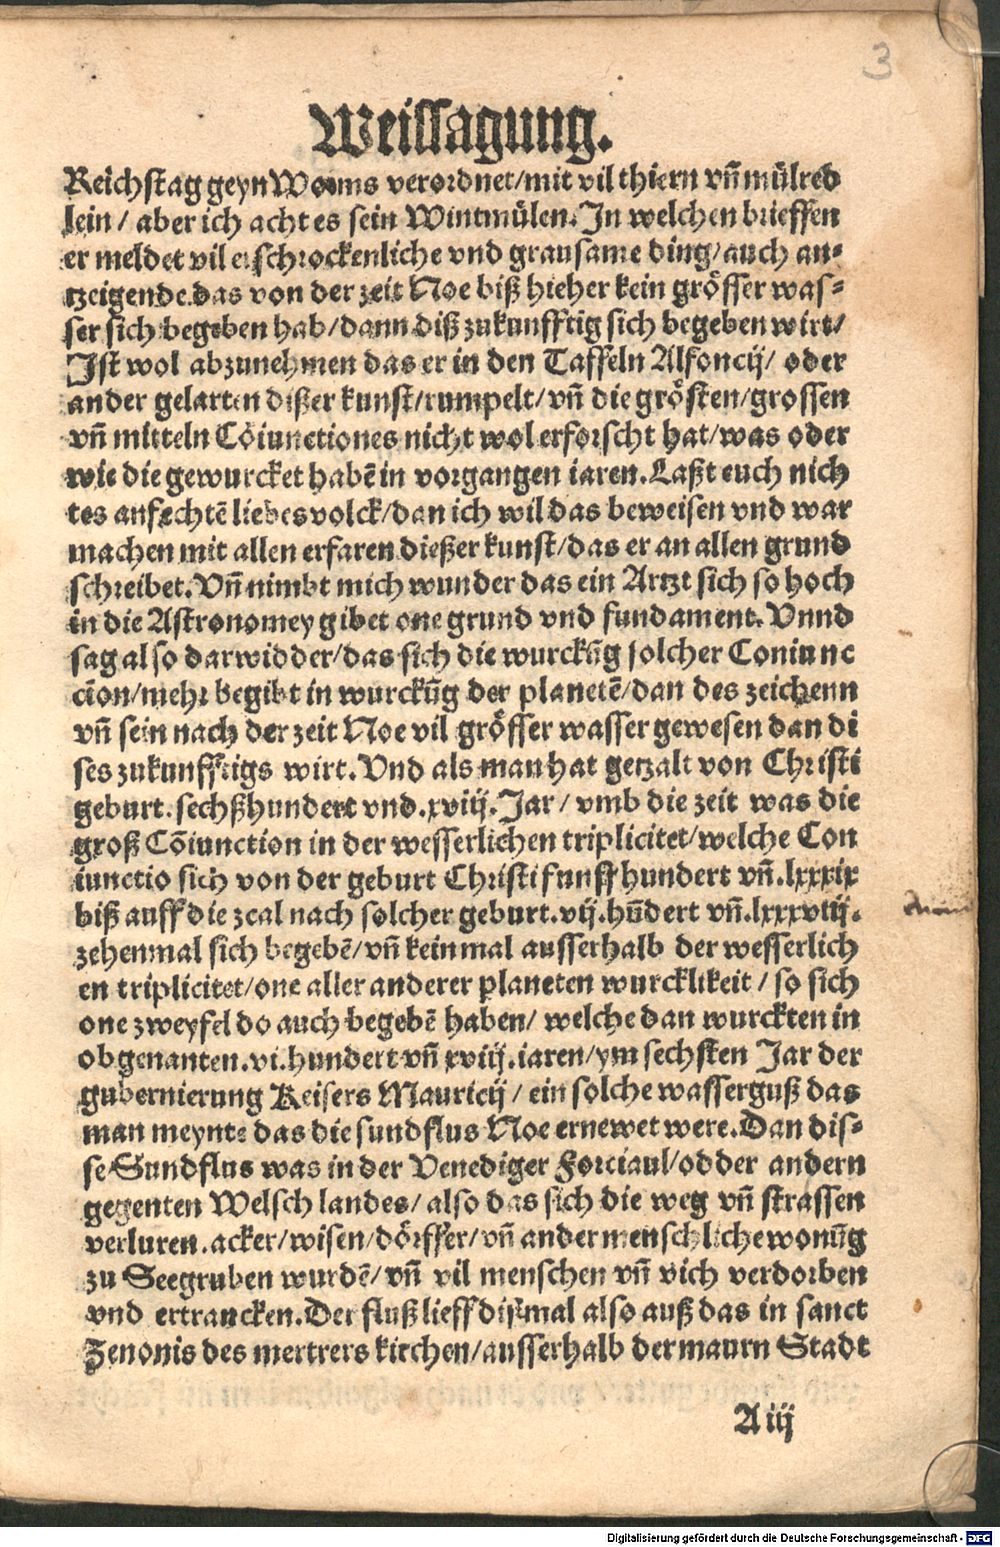 3
Weissagung.
Reichstag geyn Worms verordnet/mit vil thiern vñ mülred
lein/ aber ich acht es sein Wintmülen. In welchen brieffen
er meldet vil erschrockenliche vnd grausame ding/auch an-
tzeigende.das von der zeit Noe biß hieher kein grösser was-
ser sich begeben hab/dann diß zukunfftig sich begeben wirt/
Ist wol abzunehmen das er in den Taffeln Alfoncij/ oder
ander gelarten dißer kunst/rumpelt/vñ die grösten/grossen
vñ mitteln Cöiunctiones nicht wol erforscht hat/was oder
wie die gewurcket habē in vorgangen iaren. Laßt euch nich
tes anfechtē liebes volck/dan ich wil das beweisen vnd war
machen mit allen erfaren dießer kunst/das er an allen grund
schreibet. Vñ nimbt mich wunder das ein Artzt sich so hoch
in die Astronomey gibet one grund vnd fundament. Vnnd
sag also darwidder/das sich die wurckūg solcher Coniunc
cion/mehr begibt in wurckūg der planetē/dan des zeichenn
vñ sein nach der zeit Noe vil grösser wasser gewesen dan di
ses zukunfftigs wirt. Vnd als man hat getzalt von Christi
geburt. sechßhundert vnd.xviij. Jar/ vmb die zeit was die
groß Cōiunction in der wesserlichen triplicitet/welche Con
iunctio sich von der geburt Christi funff hundert vñ.lxxxix
biß auff die zcal nach solcher geburt.vij. hūdert vñ.lxxxviij.
zehenmal sich begebē/vñ keinmal ausserhalb der wesserlich
en triplicitet/one aller anderer planeten wurcklikeit/ so sich
one zweyfel do auch begebē haben/ welche dan wurckten in
obgenanten.vi.hundert vñ xviij.iaren/ym sechsten Jar der
gubernierung Keisers Mauricij/ ein solche wasserguß das
man meynte das die sundflus Noe ernewet were. Dan dis-
se Sundflus was in der Venediger Forciaul/odder andern
gegenten Welsch landes/ also das sich die weg vñ strassen
verluren.acker/wisen/dörffer/vñ ander menschliche wonūg
zu Seegruben wurdē/vñ vil menschen vñ vich verdorben
vnd ertrancken. Der fluß lieff dißmal also auß das in sanct
Zenonis des mertrers kirchen/ausserhalb der maurn Stadt
A iij
Digitalisierung gefördert durch die Deutsche Forschungsgemeinschaft - DFG